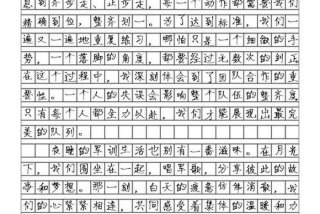 息确到位、正步走，每一个动作都需要
精确到位，整齐划一。为了达到标准，我们一
遍又一遍地重复练习，哪怕只是一个细微的手
势，一个步伐的落脚，都要经过无数次的纠正
在这个过程中，我深刻体会到了团队合作的重
要性。一个人的失误会影响整个队伍的整齐度
只有每个人都全力以赴，我们才能展现出最完
美的队列。
夜晚的军训生活也别有一番滋味。在月光
下，我们围坐在一起，唱军歌，分享彼此的故
事和梦想。那一刻，白天的疲惫仿佛消散，我
们的心紧紧相连，共同感受着集体的温暖和力